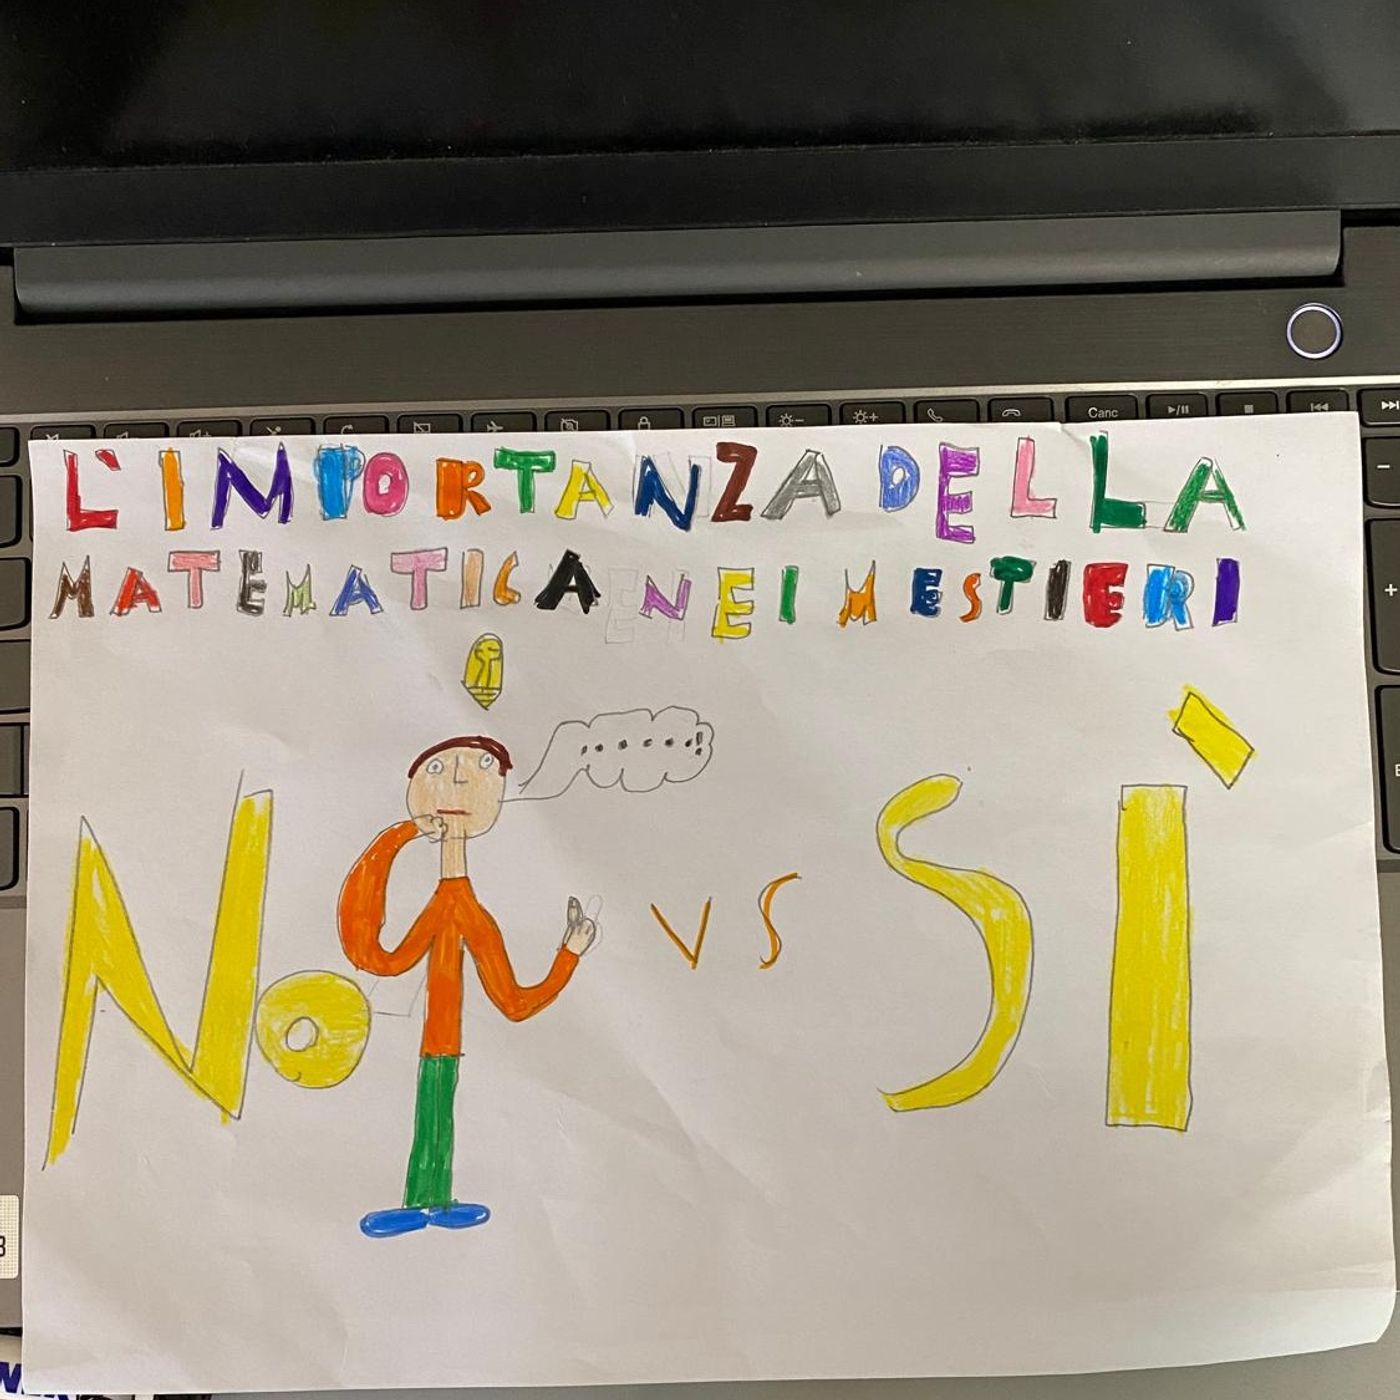 L'IMPORTANZA DELLA
MATEMATICA NEI MESTIERI
.....!
No VS SÌ
Canc